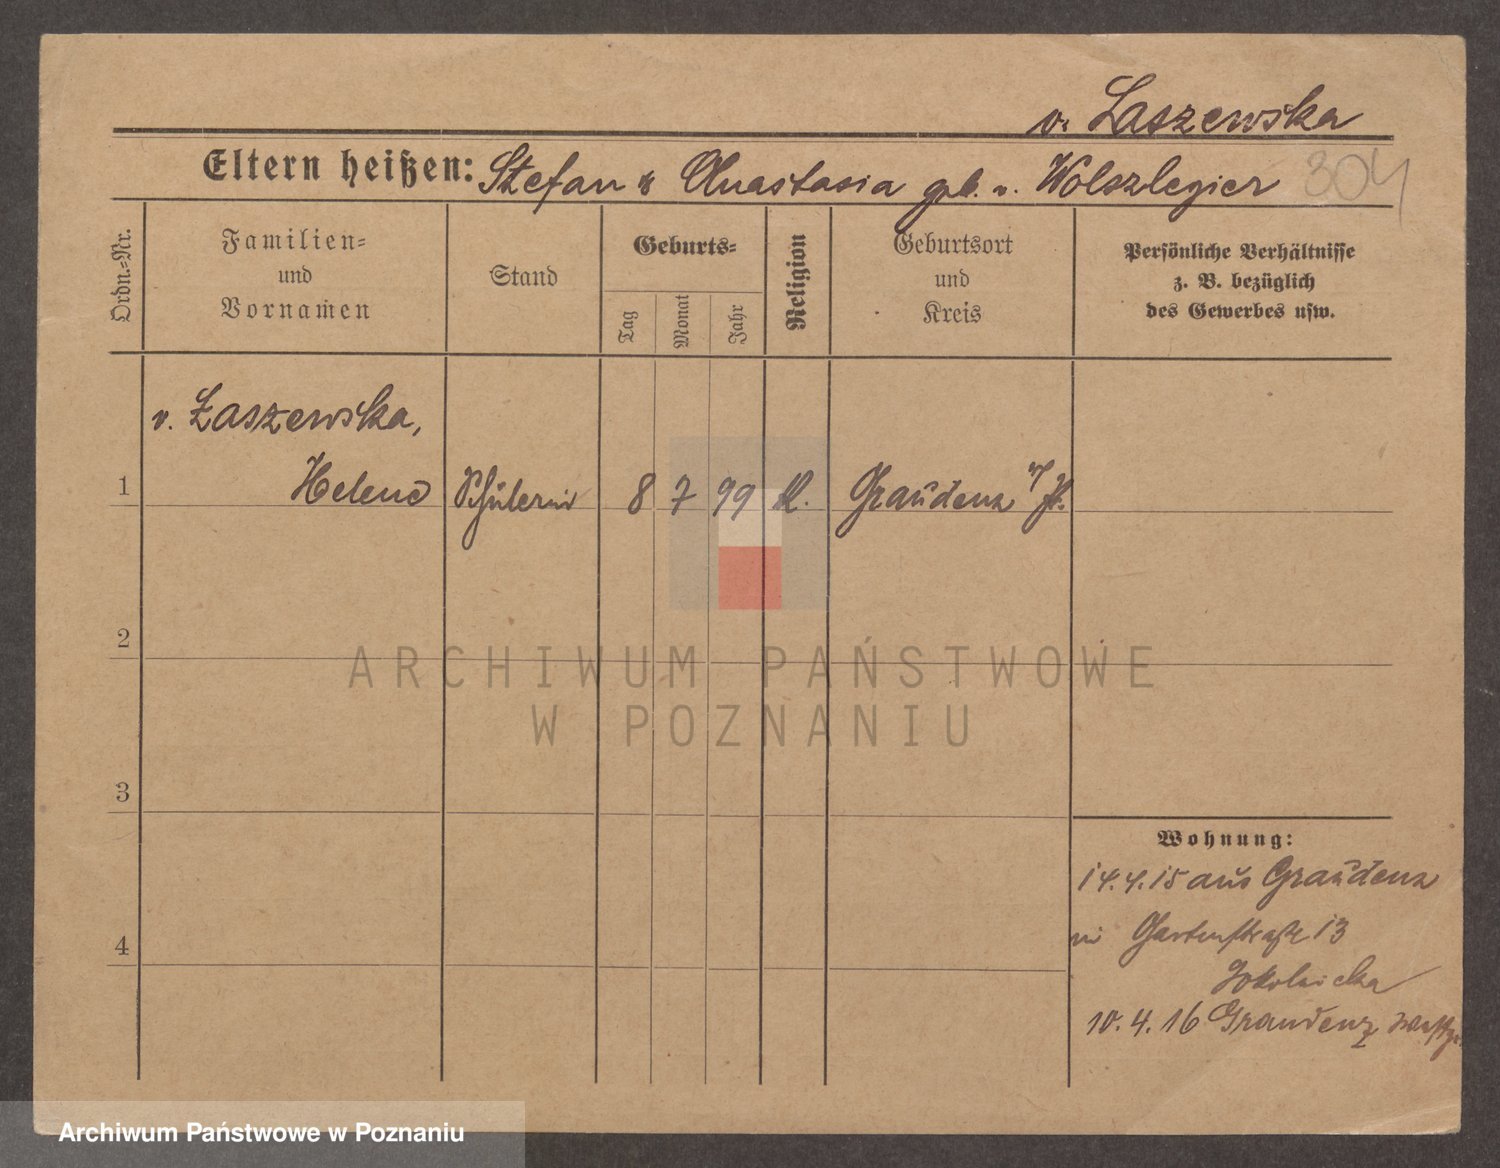 v. Laszewska
Eltern heißen: Stefan & Anastasia geb. v. Wolszlegier
304
Ordn.-Nr.
Familien-
und
Vornamen
Stand
Geburts-
Tag
Monat
Jahr
Religion
Geburtsort
und
Kreis
Persönliche Verhältnisse
z. B. bezüglich
des Gewerbes usw.
v. Łaszewska,
1 Helene Schülerin 8 7 99 k. Graudenz
2
3
4
Wohnung:
14.4.15 aus Graudenz
Gartenstraße 13
Sokolnicka
10.4.16 Graudenz Westpr.
ARCHIWUM PAŃSTWOWE
W POZNANIU
Archiwum Państwowe w Poznaniu